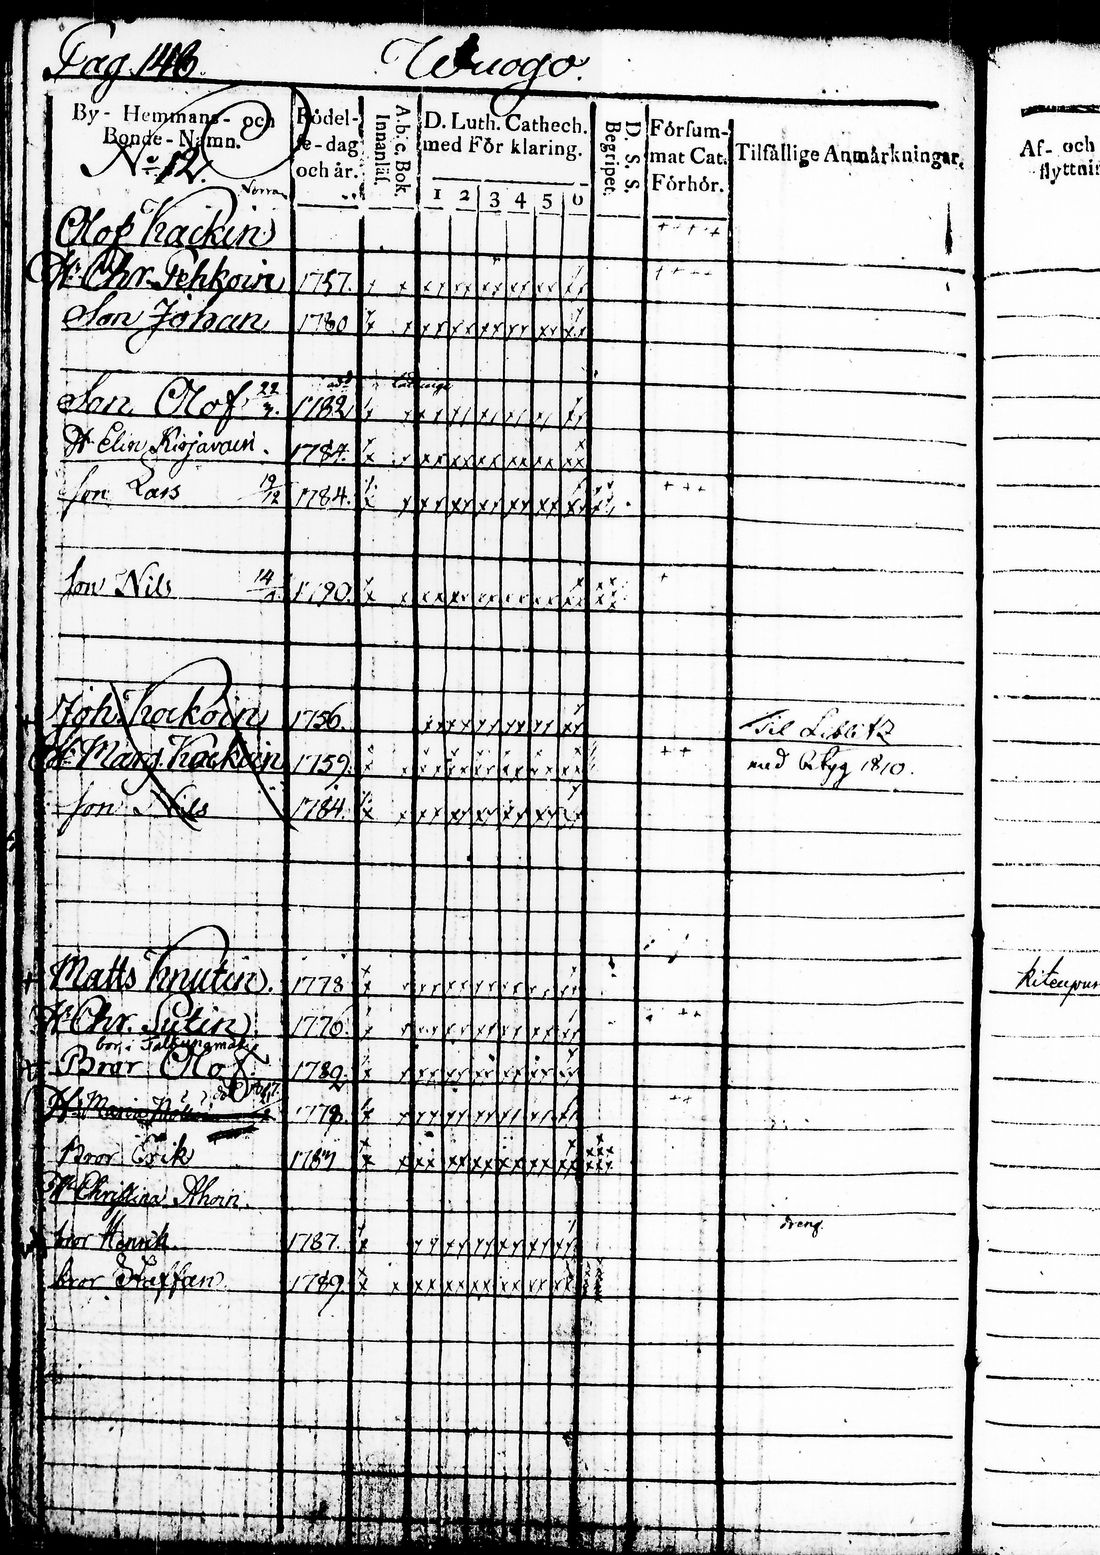 Pag. 146. Wuogo.
By- Hemmans- och Bonde-Namn. Födel-se-dag och år. A.b.c. Bok. Innanläs. D. Luth. Cathech. med För klaring. D. S. S. Begripet. Försum-mat Cat. Förhör. Tilfällige Anmärkningar. Af- och
No 12. 1 2 3 4 5 6
Olof Kackin + + + +
H. Chr. Pehkoin 1757. + + + +
Son Johan 1780
Son Olof 22 1782
H. Elin Kirjavain. 1784.
son Lars 19/12 1784. + + +
son Nils 14 1790. +
Joh. Kockoin 1756. Til Liblitz
H. Marg. Kackoin 1759. + + med Btyg 1810.
son Nils 1784.
Matts Knutin. 1778
H. Chr. Sutin 1776. + +
bor i
Bror Olof 1782
H. Maria 1778. + +
Bror Erik 1787
H. Christina Ahoin.
dreng.
bror Henrik. 1787.
bror Staffan. 1789.